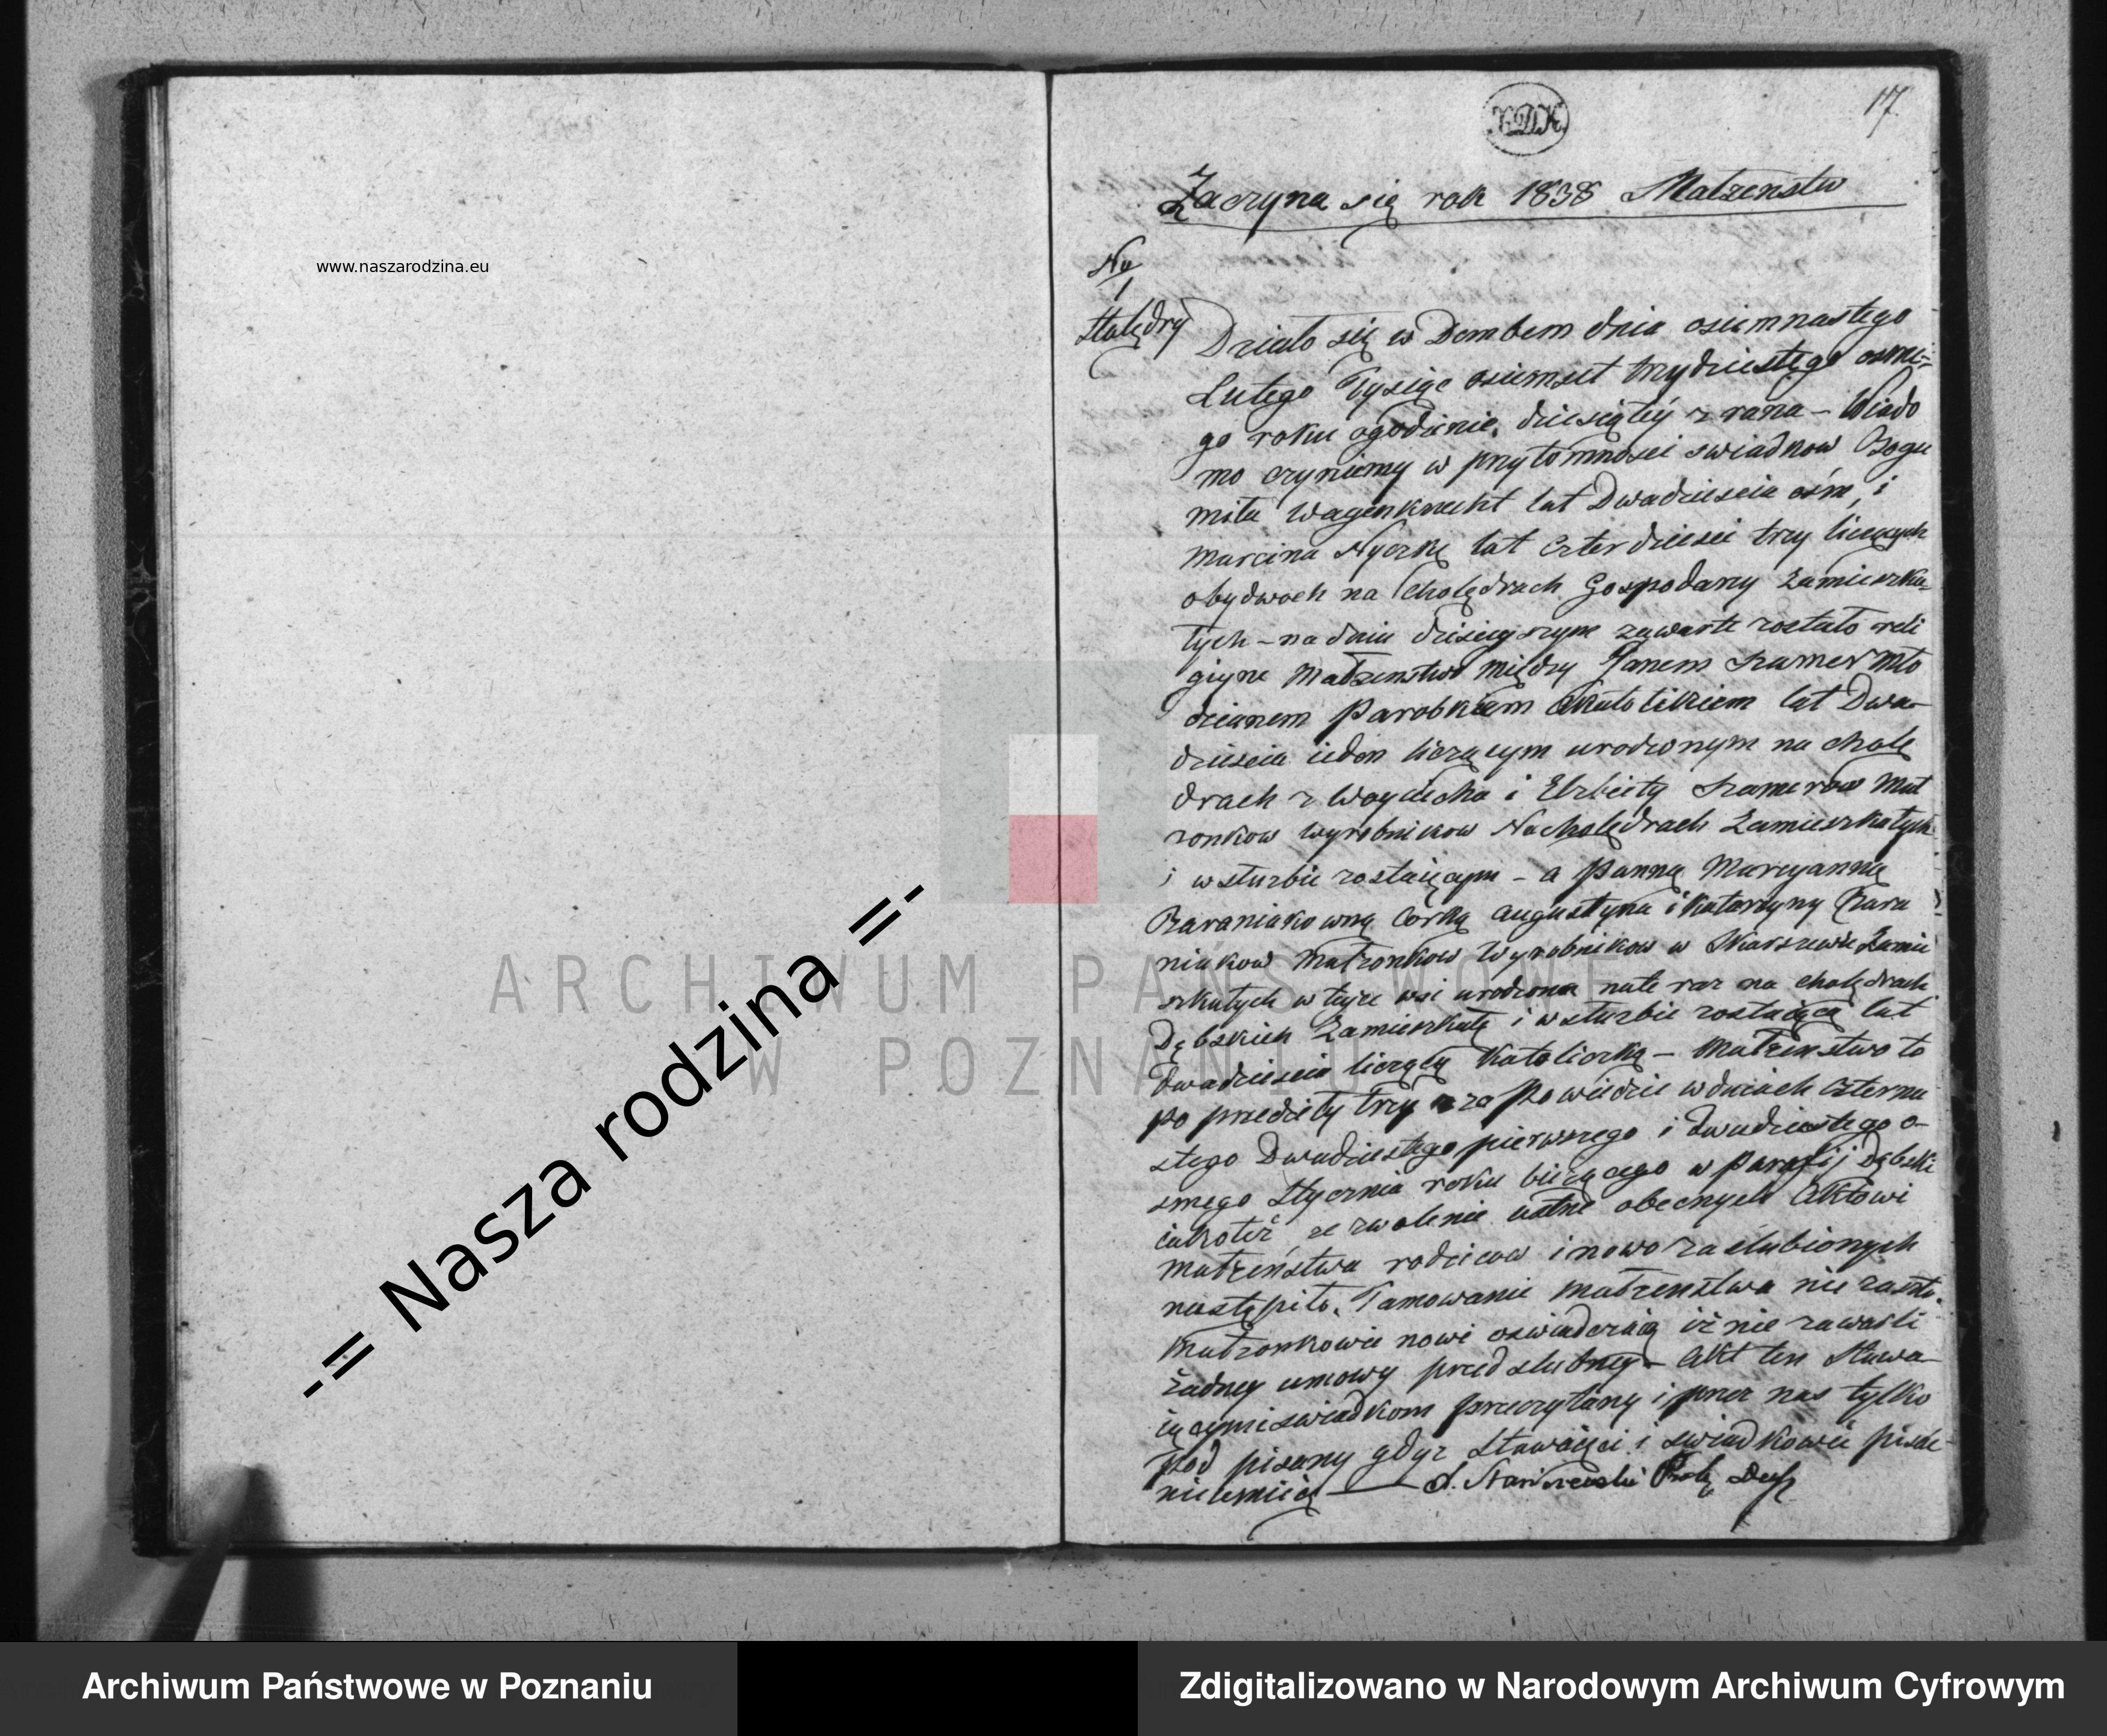 www.naszarodzina.eu
-= Nasza rodzina =-
17.
Zaczyna się rok 1838 Małzenstw
No
1
Holędry
Działo się w Dembem dnia osiemnastego
Lutego Tysiąc osiemset trzydziestego osme-
go roku ogodzinie dziesiątey z rana – Wiado
mo czyniemy w przytomnosci swiadkow Bogu
miła Wagenknecht lat Dwadziescia ośm, i
Marcina Nyczkę lat Czterdziesci trzy liczących
obydwoch na Cholędrach Gospodarzy Zamieszka-
łych – na dniu dzisieyszym zawarte zostało reli
giyne Małzenstwo między Janem Szamer Mło
dzianem Parobkiem Katolikiem lat Dwa-
dziescia ieden liczącym urodzonym na chole
drach z Woyciecha i Elzbiety Szamerow Mał
zonkow wyrobnikow Na cholędrach Zamieszkałych
i w słuzbie zostaiącym – a Panną Maryanną
Baraniakowną Corką Augustyna i Katarzyny Bara
niakow Małzonkow Wyrobnikow w Skarszewie Zamie
szkałych w teyże wsi urodzona na te raz na cholędrach
Dębskich Zamieszkałą i w słuzbie zostaiącą lat
Dwadziescia liczącą Katoliczką – Małżenstwo to
po przedziły trzy zapowiedzie w dniach czterna
stego Dwudziestego pierwszego i Dwudziestego o-
smego Stycznia roku bieżącego w Parafij Dębski
iakoteż, ze zwolenie ustne obecnych Aktowi
małżeństwa rodzicow i nowo zaslubionych
nastąpiło. Tamowanie małzenstwa nie zaszło.
Małzonkowie nowi oswiadczaią iż nie zawarli
żadney umowy przedslubney – Akt ten Stawa-
iącymi swiadkom przeczytany i przez nas tylko
pod pisany gdyz Stawaiąci i swiadkowie pisać
nieumieią
ARCHIWUM PAŃSTWOWE
W POZNANIU
Archiwum Państwowe w Poznaniu
Zdigitalizowano w Narodowym Archiwum Cyfrowym